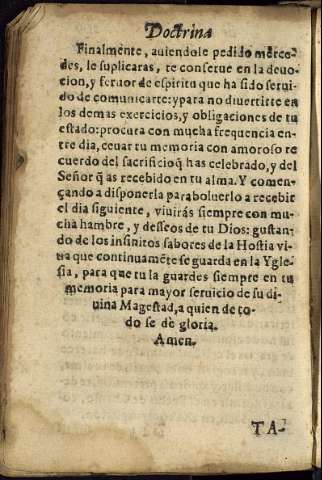 Doctrina
Finalmẽte, auiendole pedido merce-
des, le suplicaras, te conserue en la deuo-
cion, y feruor de espiritu que ha sido serui-
do de comunicarte: y para no diuertirte en
los demas exercicios, y obligaciones de tu
estado: procura con mucha frequencia en-
tre dia, ceuar tu memoria con amoroso re
cuerdo del sacrificio q̃ has celebrado, y del
Señor q̃ as recebido en tu alma. Y comen-
çando a disponerla para boluerlo a recebir
el dia siguiente, viuirás siempre con mu-
cha hambre, y desseos de tu Dios: gustan-
do de los infinitos sabores de la Hostia vi-
ua que continuamẽte se guarda en la Ygle-
sia, para que tu la guardes siempre en tu
memoria para mayor seruicio de su di-
uina Magestad, a quien de to-
do se dè gloria.
Amen.
TA-